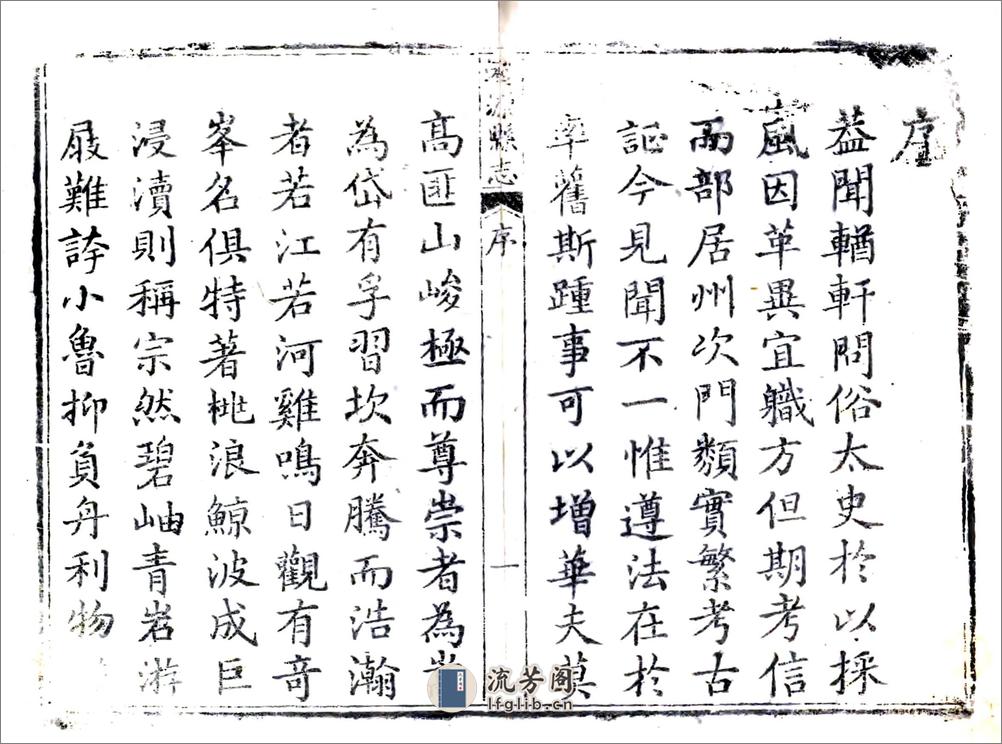 序
蓋聞輶軒問俗太史於以採
風因革異宜職方但期考信
而部居州次門類實繁考古
証今見聞不一惟遵法在於
率舊斯踵事可以增華夫莫
縣志
序
一
高匪山峻極而尊崇者為嵩
為岱有孚習坎奔騰而浩瀚
者若江若河雞鳴日觀有奇
峯名俱特著桃浪鯨波成巨
浸瀆則稱宗然碧岫青岩游
屐難誇小魯抑負舟利物
流芳阁
lfglib.cn